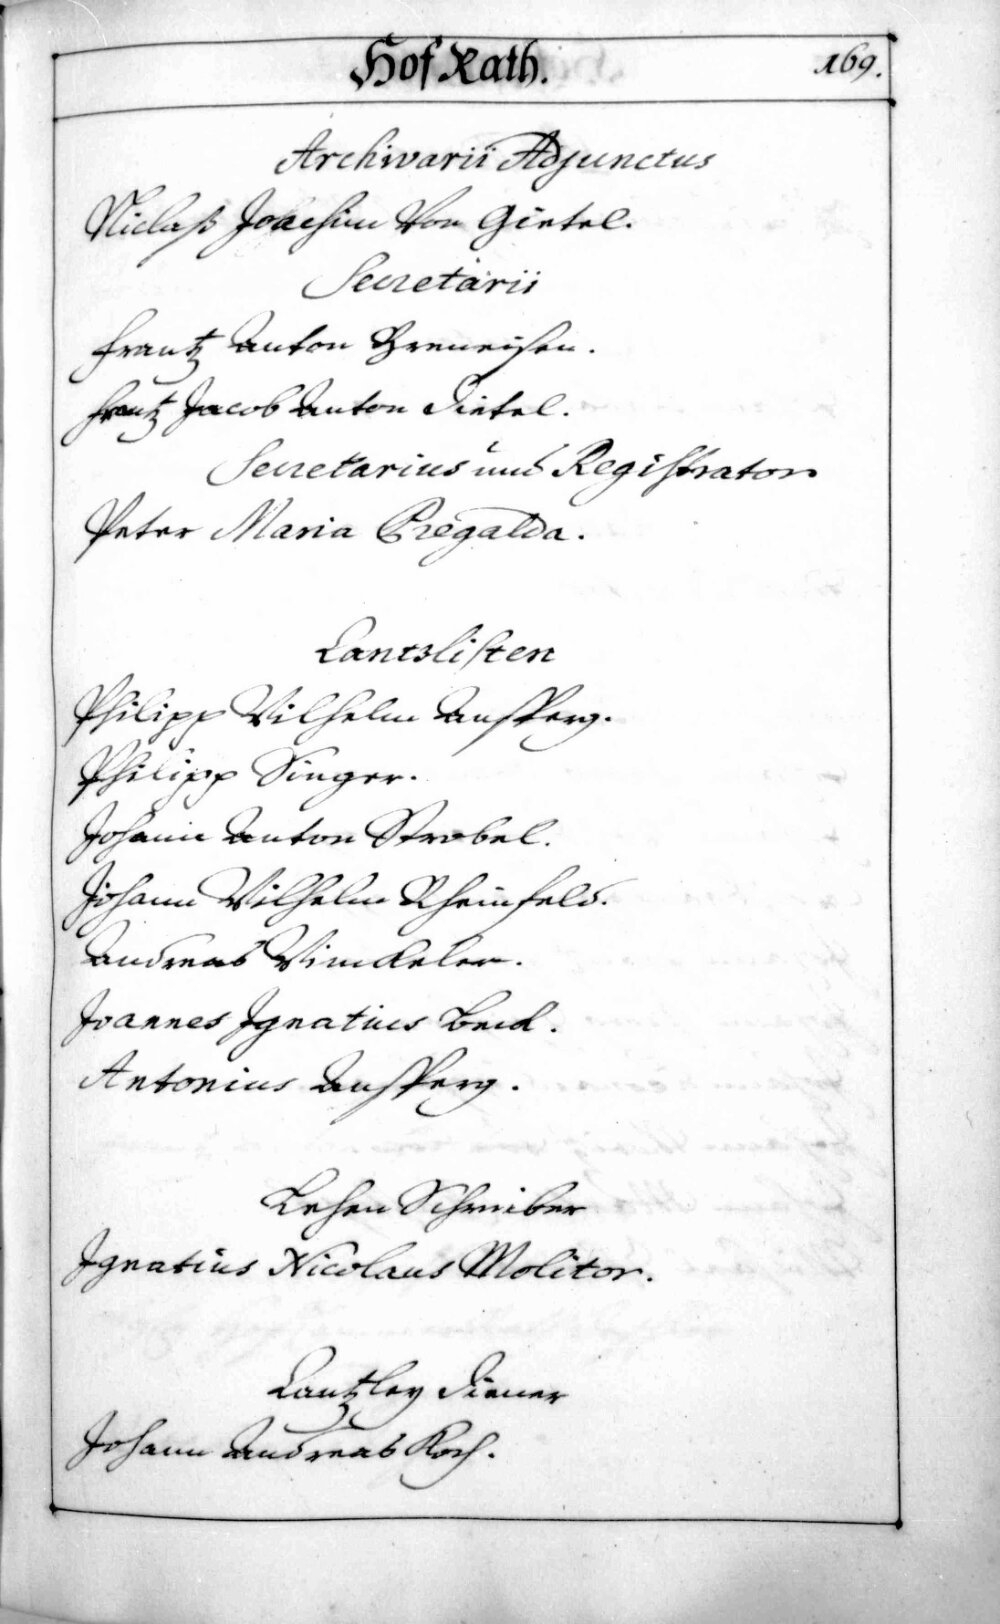 Hof Rath.
169.
Archivarii Adjunctus
Niclaß Joachim Von Girtel.
Secretarii
Frantz Anton Breneisen.
Frantz Jacob Anton Dietel.
Secretarius und Registrator
Peter Maria Pregalda.
Cantzlisten
Philipp Wilhelm
Philipp Singer.
Johann Anton Strobel.
Johann Wilhelm Rheinfeld.
Andreas Winckeler.
Joannes Ignatius
Antonius
Lehen Schreiber
Ignatius Nicolaus Molitor.
Cantzley Diener
Johann Andreas Koch.